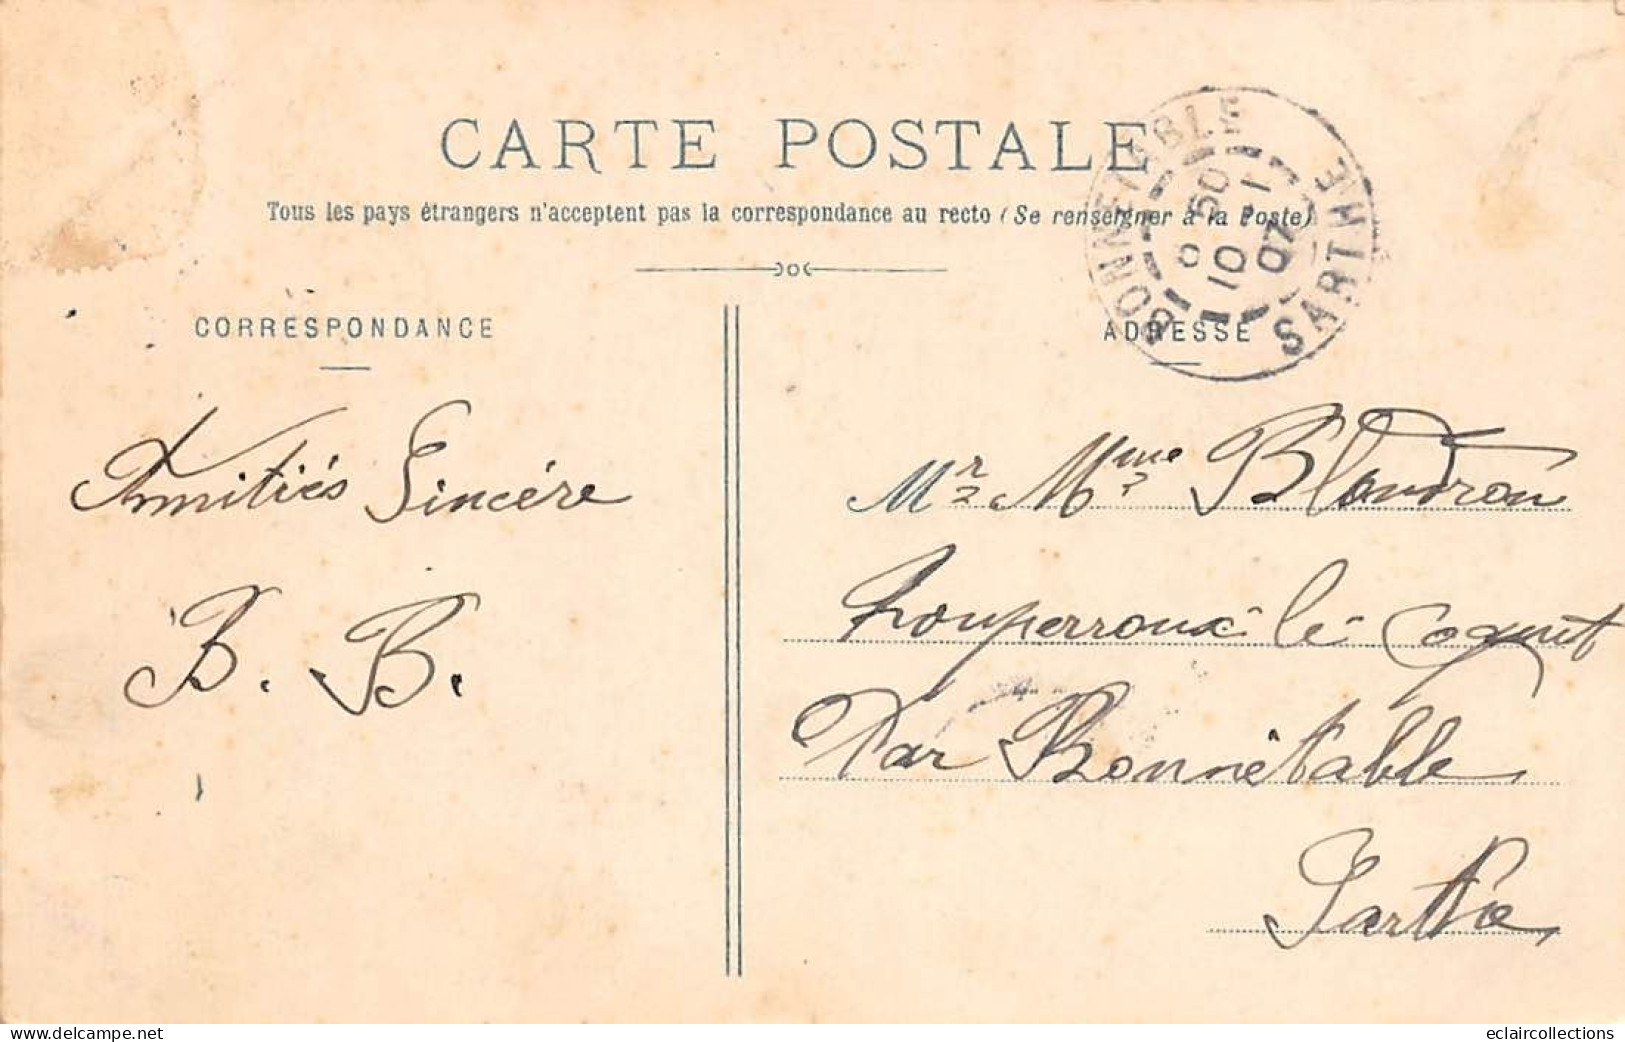 CARTE POSTALE
Tous les pays étrangers n'acceptent pas la correspondance au recto (Se renseigner à la Poste)
BONNETABLE SARTHE
10
07
CORRESPONDANCE
ADRESSE
Amitiés Sincère
B. B.
Mr Mme Blandron
Louperroux le Coquet
Par Bonnétable
Sarthe
delcampe.net
eclaircollections